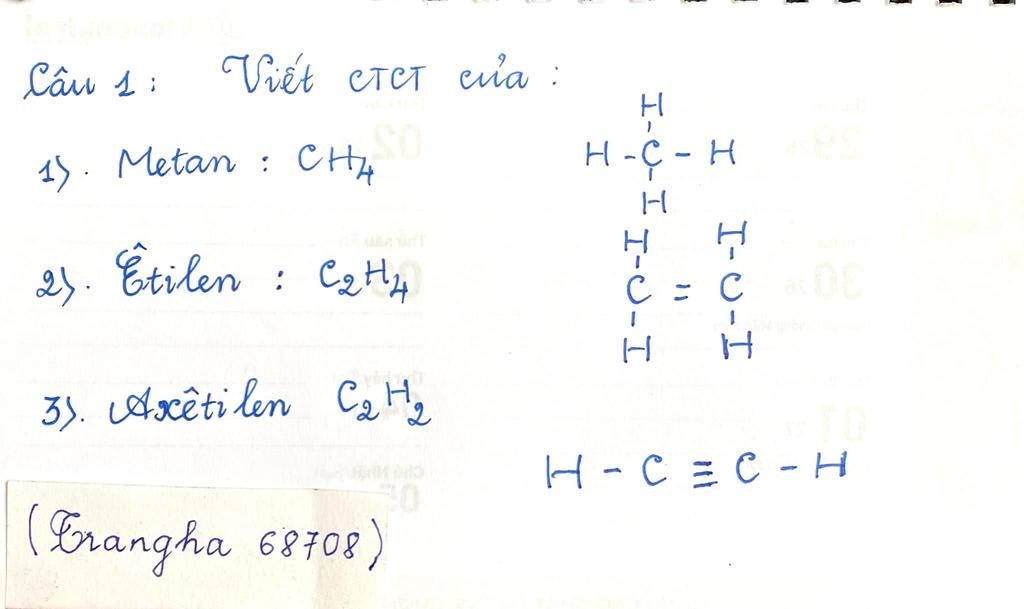 Câu 1: Viết CTCT của:
1). Metan : CH4
H
H - C - H
H
2). Êtilen : C2H4
H H
C = C
H H
3). Axêtilen C2H2
H - C ≡ C - H
(Trangha 68708)